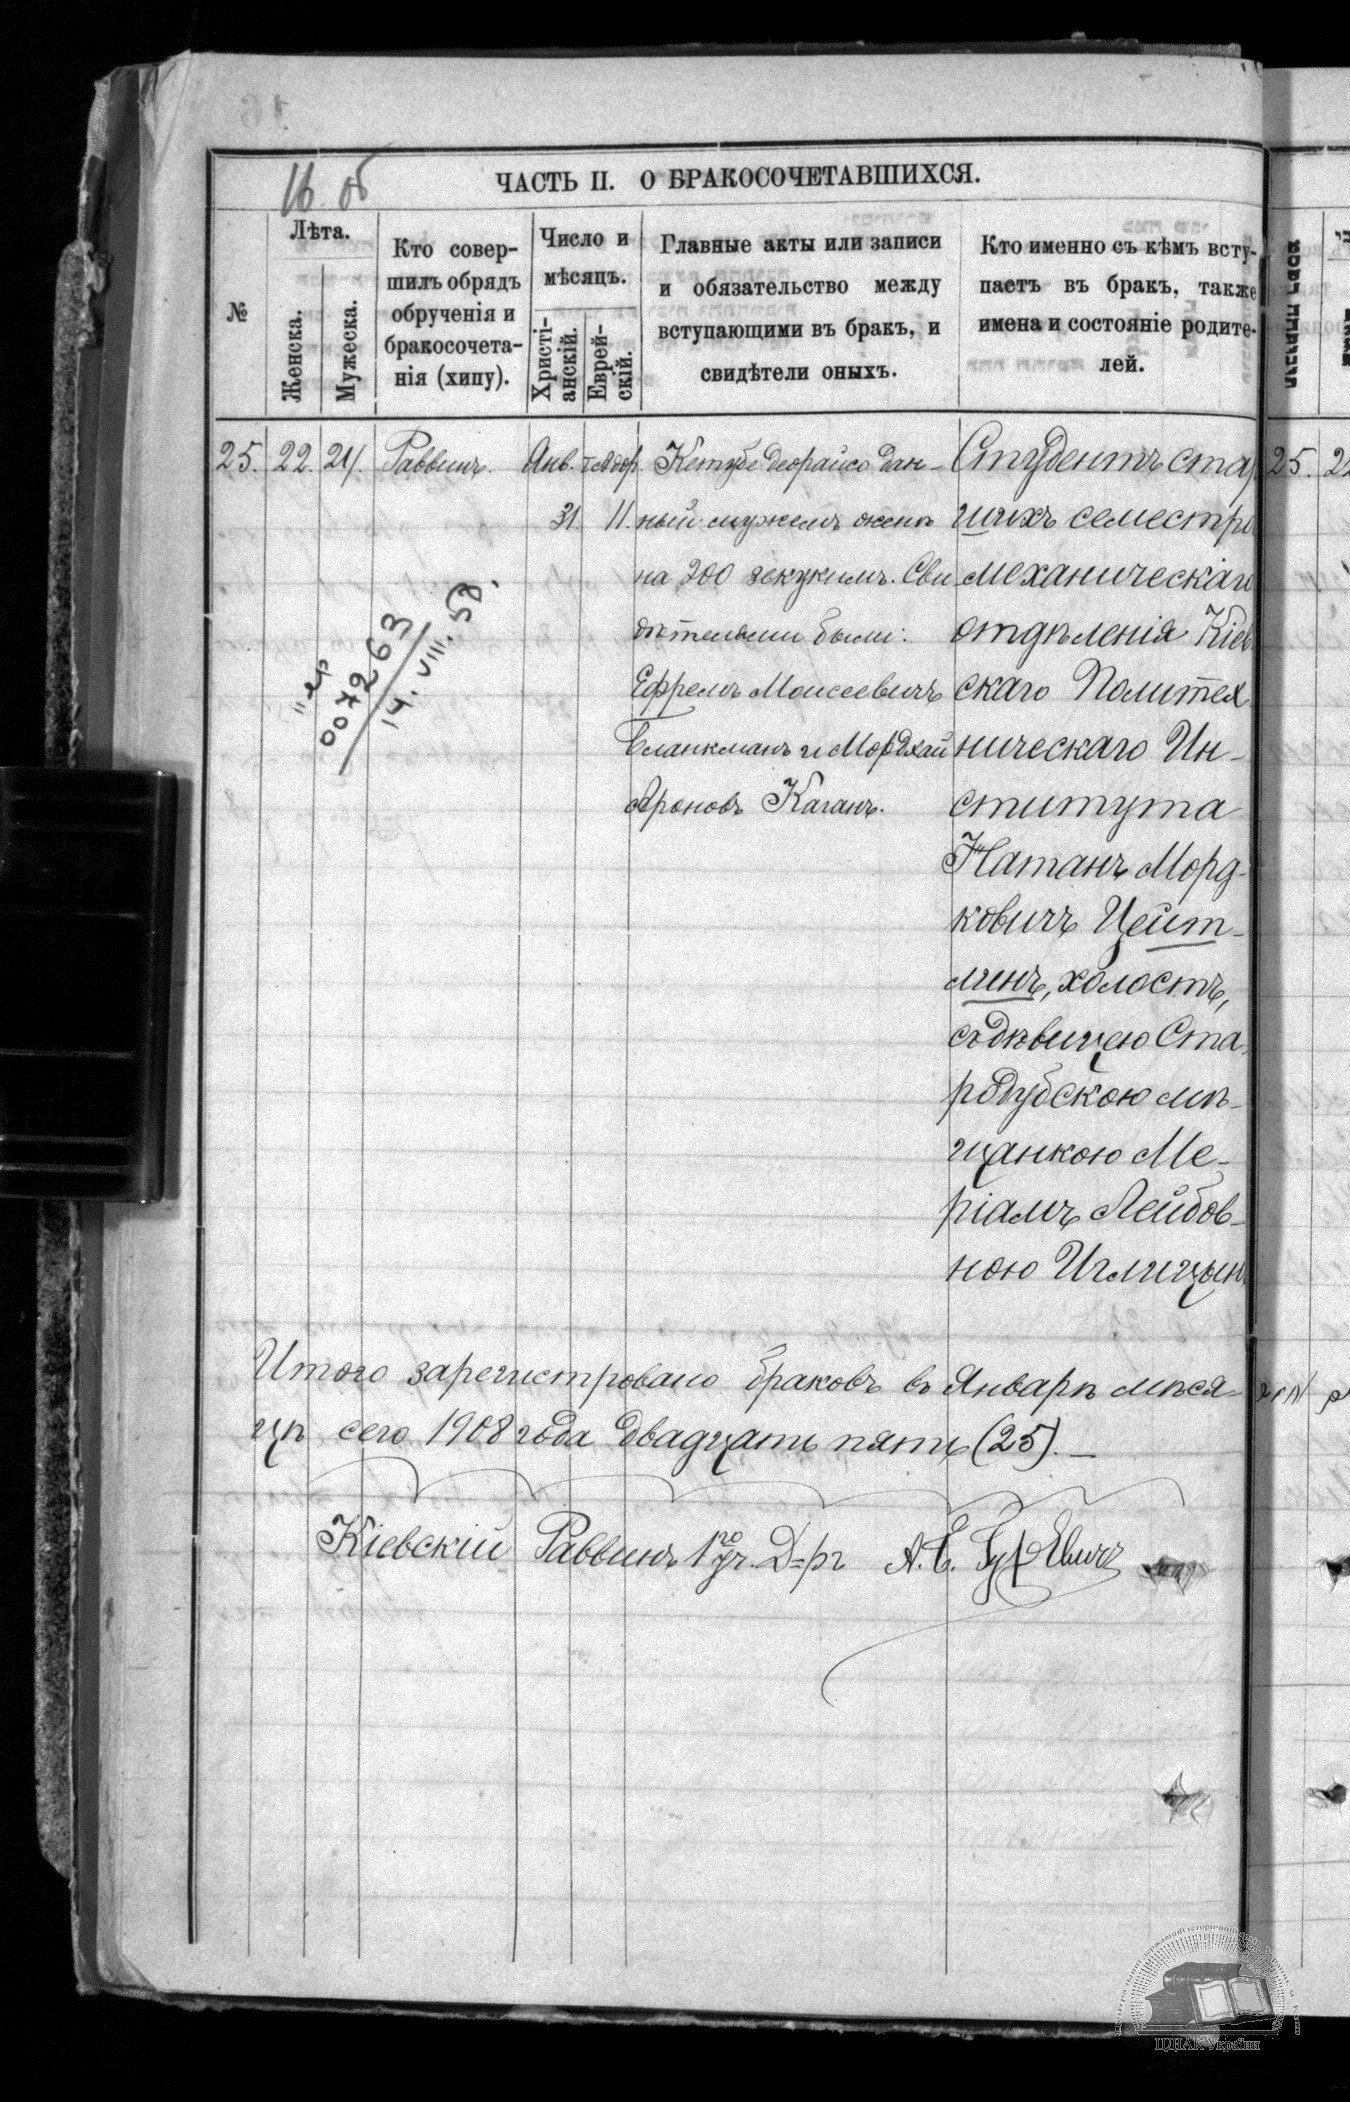 16 об
ЧАСТЬ II. О БРАКОСОЧЕТАВШИХСЯ.
№
Лѣта.
Женска.
Мужеска.
Кто совер-
шилъ обрядъ
обрученія и
бракосочета-
нія (хипу).
Число и
мѣсяцъ.
Христі-
анскій.
Еврей-
скій.
Главные акты или записи
и обязательство между
вступающими въ бракъ, и
свидѣтели оныхъ.
Кто именно съ кѣмъ всту-
паетъ въ бракъ, также
имена и состояніе родите-
лей.
25. 22. 24. Раввинъ. Янв. 31. Адор. 11.
Кетубе деорайсо дан-
ный мужемъ женѣ
на 200 зекукимъ. Сви
дѣтелями были:
Ефремъ Моисеевичъ
Бланкманъ и Мордхай
Ароновъ Каганъ.
Студентъ стар
шихъ семестро
механическаго
отдѣленія Кіев
скаго Политех
ническаго Ин-
ститута
Натанъ Морд-
ковичъ Цейт-
линъ, холостъ,
съ дѣвицею Ста-
родубскою мѣ-
щанкою Ме-
ріамъ Лейбов-
ною Иглицын
007263
14. VIII. 58.
Итого зарегистровано браковъ въ Январѣ мѣся-
цѣ сего 1908 года двадцать пять (25).—
Кіевскій Раввинъ 1го уч. Д-ръ А. Б. Гуревичъ
25. 22
ЦДІАК України